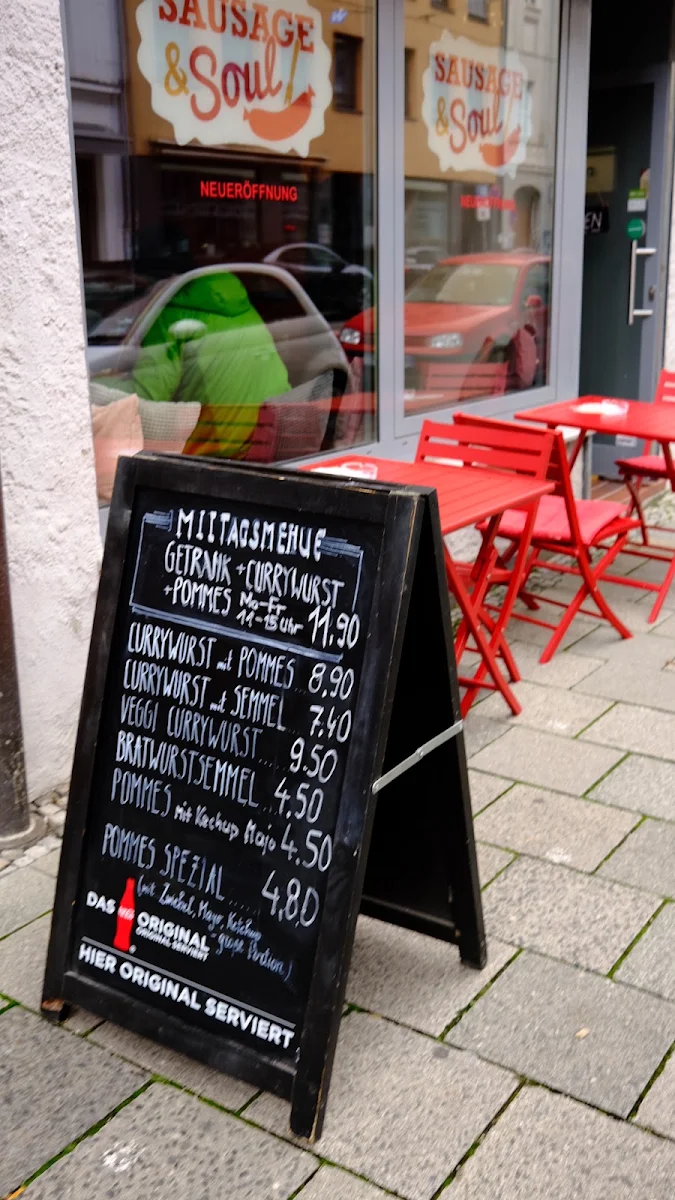 SAUSAGE
& Soul
NEUERÖFFNUNG
SAUSAGE
& Soul
NEUERÖFFNUNG
EN
MITTAGSMENUE
GETRÄNK + CURRYWURST
+ POMMES Mo-Fr
11-15 Uhr 11,90
CURRYWURST mit POMMES 8,90
CURRYWURST mit SEMMEL.. 7.40
VEGGI CURRYWURST... 9.50
BRATWURSTSEMMEL... 4.50
POMMES mit Kechup Majo 4.50
POMMES SPEZIAL..... 4,80
(mit Zwiebel, Mayo, Ketchup
- große Portion.)
DAS ORIGINAL
ORIGINAL SERVIERT
HIER ORIGINAL SERVIERT